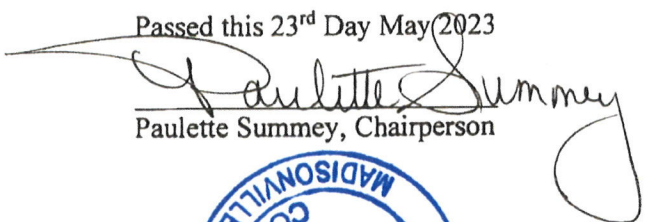 Passed this 23rd Day May 2023
Paulette Summey
Paulette Summey, Chairperson
MADISONVILLE